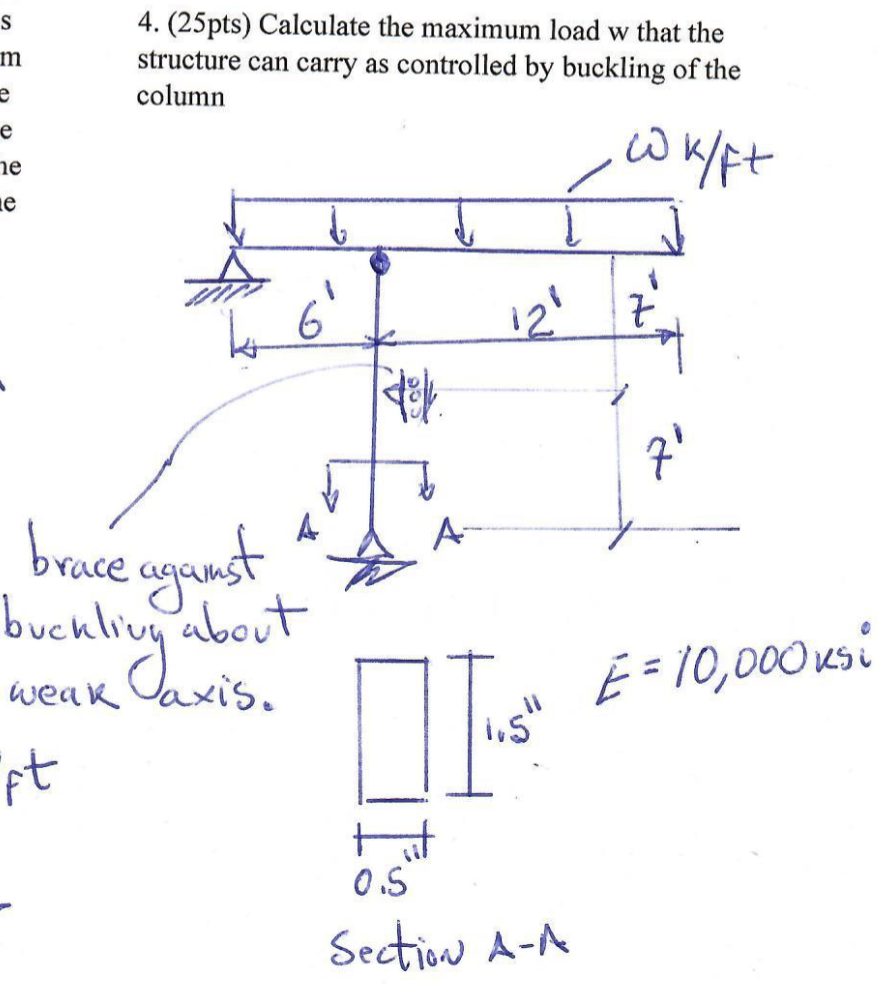 s
m
e
e
ne
e
4. (25pts) Calculate the maximum load w that the
structure can carry as controlled by buckling of the
column
ω k/ft
6'
12'
7'
7'
A
A
brace against
buckling about
weak axis.
E = 10,000 ksi
1.5"
ft
0.5"
Section A-A